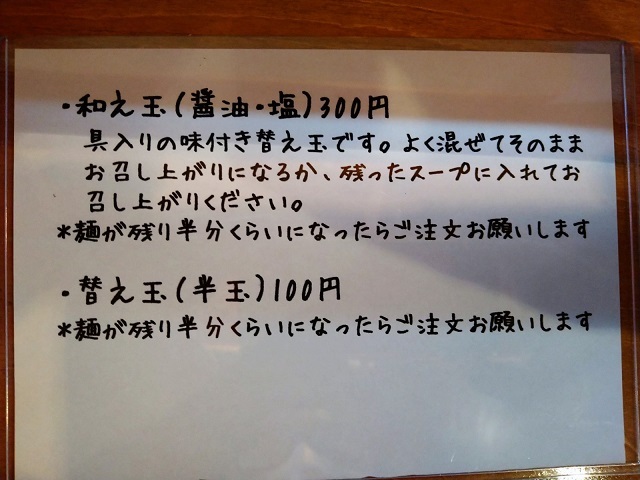 ・和え玉(醤油・塩)300円
具入りの味付き替え玉です。よく混ぜてそのまま
お召し上がりになるか、残ったスープに入れてお
召し上がりください。
*麺が残り半分くらいになったらご注文お願いします
・替え玉(半玉)100円
*麺が残り半分くらいになったらご注文お願いします